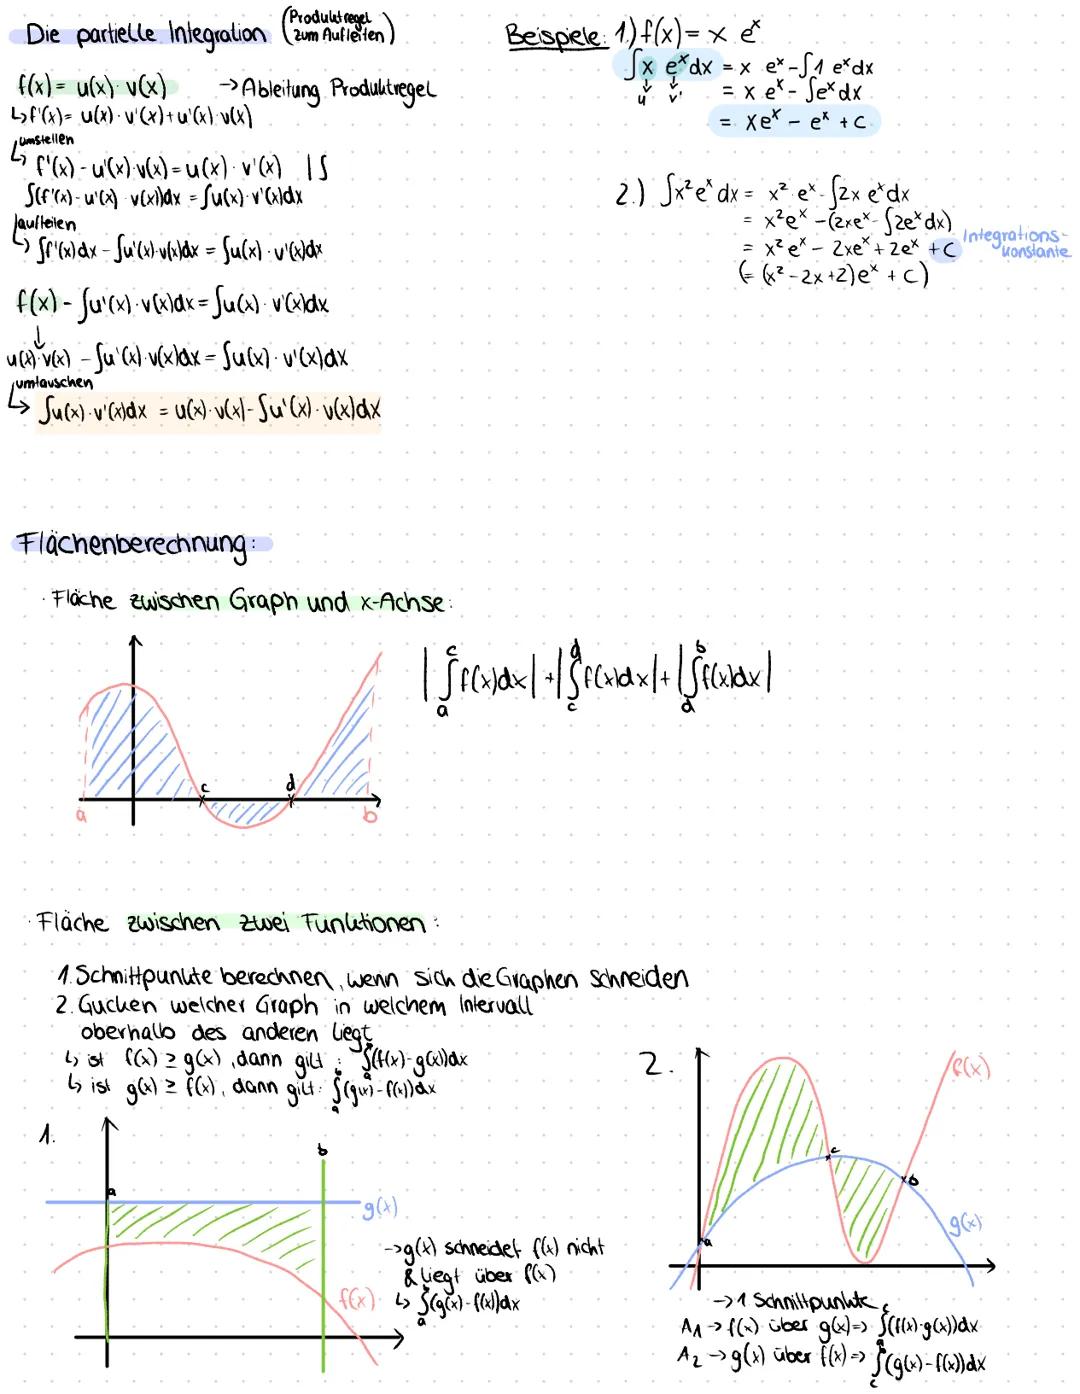 Die partielle Integration (Produktregel zum Aufleiten)
f(x) = u(x) · v(x) → Ableitung Produktregel
↳ f'(x) = u(x) · v'(x) + u'(x) · v(x)
umstellen
↳ f'(x) - u'(x) · v(x) = u(x) · v'(x) | ∫
∫(f'(x) - u'(x) · v(x))dx = ∫u(x) · v'(x)dx
aufteilen
↳ ∫f'(x)dx - ∫u'(x) · v(x)dx = ∫u(x) · v'(x)dx
f(x) - ∫u'(x) · v(x)dx = ∫u(x) · v'(x)dx
↓
u(x) · v(x) - ∫u'(x) · v(x)dx = ∫u(x) · v'(x)dx
umtauschen
↳ ∫u(x) · v'(x)dx = u(x) · v(x) - ∫u'(x) · v(x)dx
Beispiele: 1.) f(x) = x e^x
∫x e^x dx = x · e^x - ∫1 · e^x dx
u v' = x e^x - ∫e^x dx
= xe^x - e^x + c
2.) ∫x²e^x dx = x² · e^x - ∫2x e^x dx
= x²e^x - (2xe^x - ∫2e^x dx)
= x²e^x - 2xe^x + 2e^x + c Integrations-konstante
(= (x² - 2x + 2)e^x + c)
Flächenberechnung:
· Fläche zwischen Graph und x-Achse:
|∫_a^c f(x)dx| + |∫_c^d f(x)dx| + |∫_d^b f(x)dx|
c d
a b
· Fläche zwischen zwei Funktionen:
1. Schnittpunkte berechnen, wenn sich die Graphen schneiden
2. Gucken welcher Graph in welchem Intervall
oberhalb des anderen liegt
↳ ist f(x) ≥ g(x), dann gilt: ∫_a^b (f(x) - g(x))dx
↳ ist g(x) ≥ f(x), dann gilt: ∫_a^b (g(x) - f(x))dx
1.
b
a
g(x)
f(x)
→ g(x) schneidet f(x) nicht
& liegt über f(x)
↳ ∫_a^b (g(x) - f(x))dx
2.
f(x)
c
b
a
g(x)
→ 1 Schnittpunkte
A1 → f(x) über g(x) => ∫_a^c (f(x) - g(x))dx
A2 → g(x) über f(x) => ∫_c^b (g(x) - f(x))dx